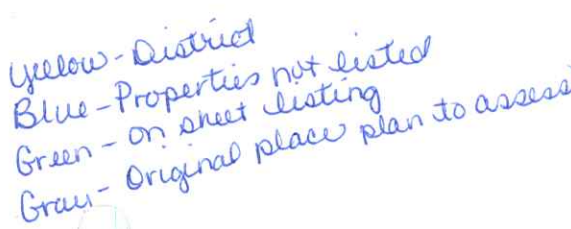 Yellow - District
Blue - Properties not listed
Green - on sheet listing
Gray - Original place plan to assess